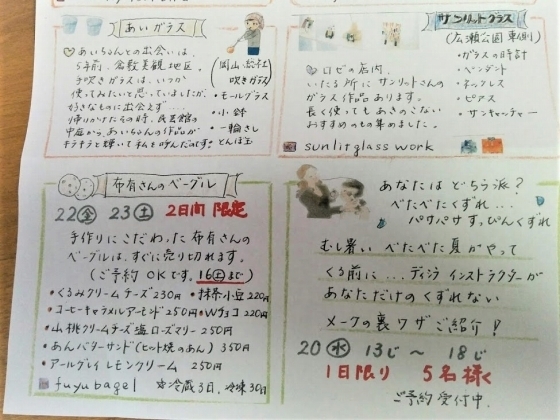 あいガラス
♡あいちゃんとの出会いは、
5年前、倉敷美観地区。
手吹きガラスは、いつか
使ってみたいと思っていましたが、
好きなものに出会えず…
帰りかけたその時、民芸館の
中庭から、あいちゃんの作品が
キラキラと輝いて私を呼んだのです。
(岡山 総社
吹きガラス)
・モールグラス
・小鉢
・一輪さし
とんぼ玉
サンリットグラス
(広瀬公園 東側)
・ガラスの時計
・ペンダント
・ネックレス
・ピアス
・サンキャッチャー
♡ロゼの店内、
いたる所にサンリットさんの
ガラス作品あります。
長く使ってもあきのこない
おすすめのもの集めました。
sunlitglass work
布有さんのベーグル
22(金) 23(土) 2日間 限定
手作りにこだわった布有さんの
ベーグルは、すぐに売り切れます。
(ご予約OKです。16(土)まで)
・くるみクリームチーズ230円 ・抹茶小豆220円
・コーヒーキャラメルアーモンド250円 ・Wチョコ220円
・山桃クリームチーズ海塩ローズマリー250円
・あんバターサンド(ヒート焼のあん)350円
・アールグレイレモンクリーム250円
fuyubagel ☆冷蔵3日、冷凍30日
あなたはどちら派?
べたべたくずれ…
パサパサすっぴんくずれ
むし暑いべたべた夏がやって
くる前に…ディシラ インストラクターが
あなただけのくずれない
メークの裏ワザご紹介!
20(水) 13じ〜18じ
1日限り 5名様く
ご予約受付中.